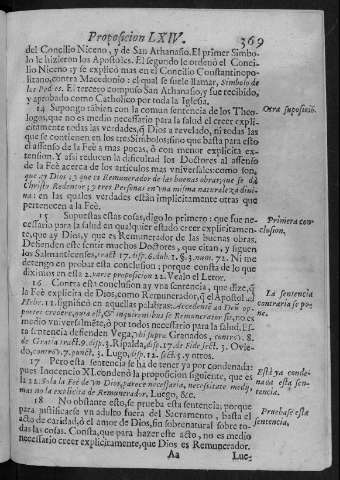 Proposicion LXIV.
369
del Concilio Niceno, y de San Athanasio. El primer Simbo-
lo le hizieron los Apostoles. El segundo le ordenó el Conci-
lio Niceno: y se explicó mas en el Concilio Constantinopo-
litano, contra Macedonio: el qual se suele llamar, Simbolo de
los Padres. El tercero compuso San Athanasio, y fue recibido,
y aprobado como Catholico por toda la Iglesia.
14 Supongo tãbien con la comun sentencia de los Theo-
Otra suposiciõ.
logos, que no es medio necessario para la salud el creer expli-
citamente todas las verdades, q̃ Dios a revelado, ni todas las
que se contienen en los tres Simbolos: sino que basta para esto
el assenso de la Feè a mas pocas, ò con menor explicita ex-
tension. Y asi reducen la dificultad los Doctores al assenso
de la Feè acerca de los articulos mas vniversales: como son,
que ay Dios: y que es Remunerador de las buenas obras: que se dà
Christo Redentor: y tres Personas en vna misma naturaleza divi-
na: en las quales verdades están implicitamente otras que
pertenecen a la Feè.
15 Supuestas estas cosas, digo lo primero: que fue ne-
Primera con-
cessario para la salud en qualquier estado creer explicitamen-
clusion.
te, que ay Dios, y que es Remunerador de las buenas obras.
Defienden este sentir muchos Doctores, que citan, y siguen
los Salmanticenses, tract. 17. disp. 6. dub. 1. §. 3. num. 72. Ni me
detengo en probar esta conclusion; porque consta de lo que
diximos en esta 2. parte proposicion 22. Vealo el Letor.
16 Contra esta conclusion ay vna sentencia, que dize, q̃
La sentencia
la Feè explicita de Dios, como Remunerador, q̃ el Apostol ad
contraria se po-
Hebr. 11. significò en aquellas palabras: Accedentem ad Deũ op-
ne.
portet credere, quia est, & inquirentibus se Remunerator sit, no es
medio vniversalmẽte, ò por todos necessario para la salud. Es-
ta sentencia defienden Vega, vbi supra Granados, controv. 8.
de Gratia tract. 9. disp. 3. Ripalda, disp. 17. de Fide sect. 3. Ovie-
do, controv. 7. punct. 3. Lugo, disp. 12. sect. 5. y otros.
17 Pero esta sentencia se ha de tener ya por condenada:
Està ya conde-
pues Inocencio XI. condenò la proposicion siguiente, que es
nada esta sen-
la 22. Sola la Feè de Vn Dios, parece necessaria, necessitate medij,
tencia.
mas no la explicita de Remunerador, Luego, &c.
18 No obstante esto, se prueba esta sentencia; porque
Pruebase esta
para justificarse vn adulto fuera del Sacramento, basta el
sentencia,
acto de caridad, ò el amor de Dios, sin sobrenatural sobre to-
das las cosas. Consta, que para hazer este acto, no es medio
necessario creer explicitamente, que Dios es Remunerador.
Aa
Lue-